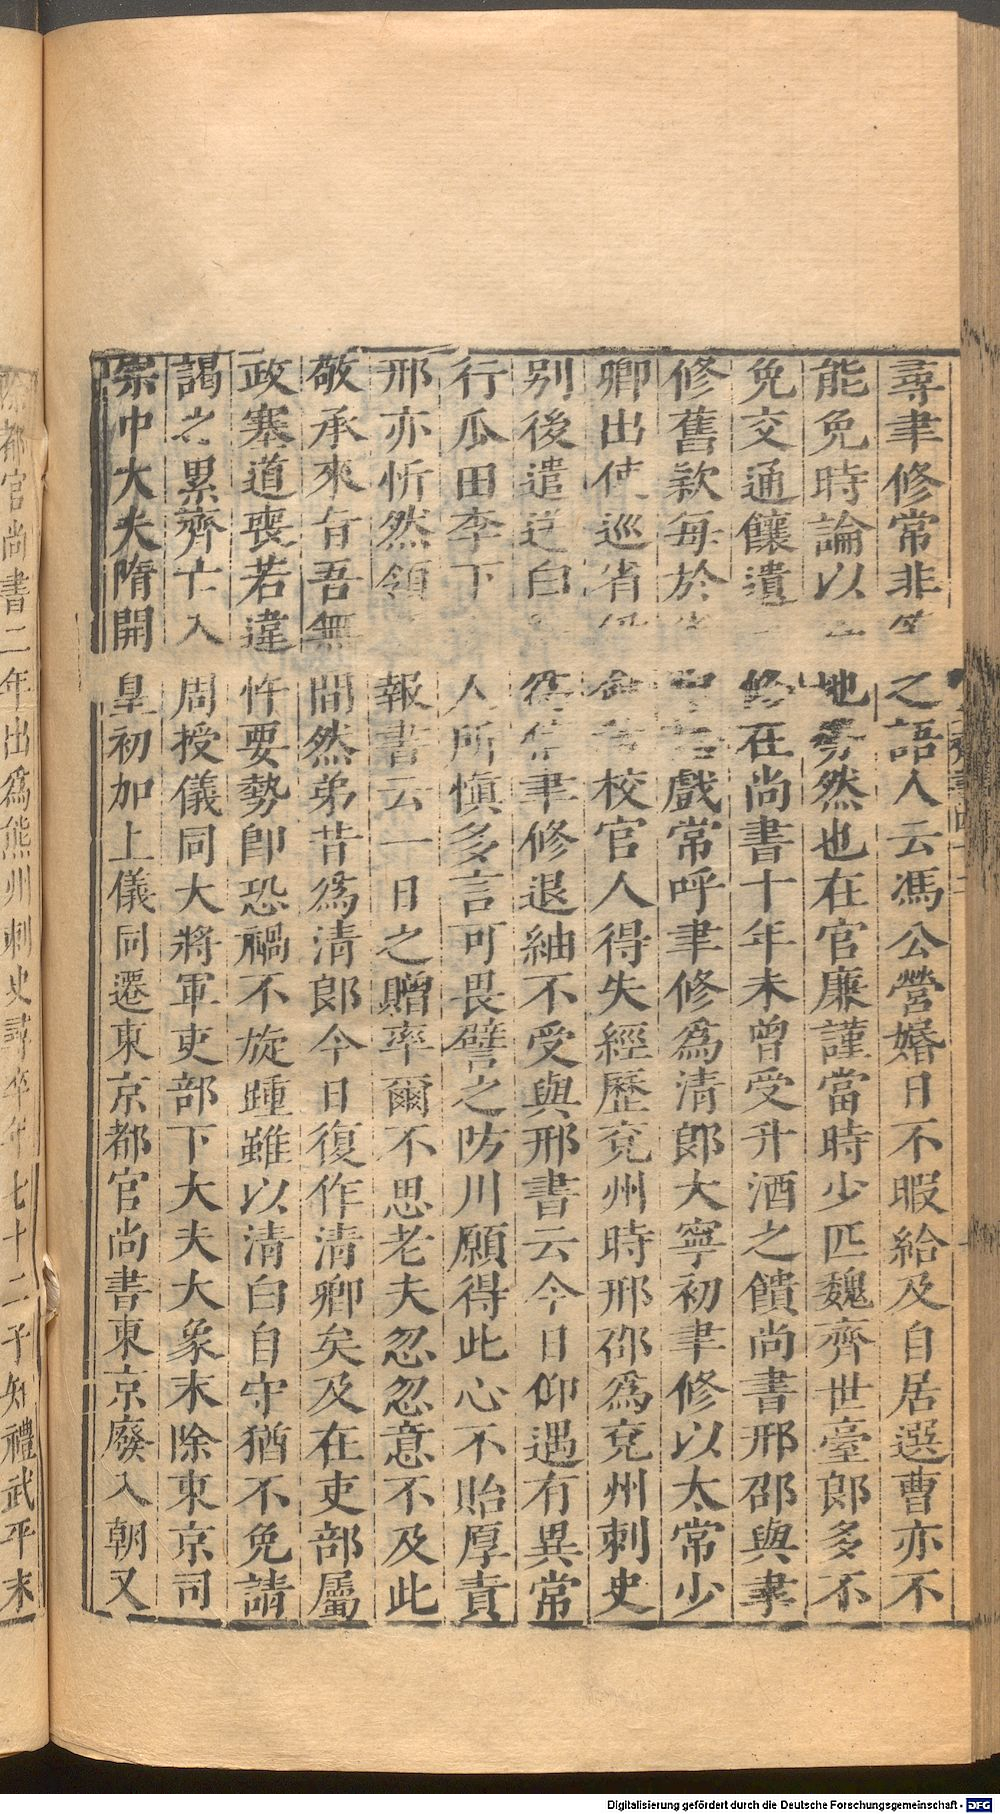 尋聿修常非
之語人云馮公營婚日不暇給及自居選曹亦不
能免時論以
地勢然也在官廉謹當時少匹魏齊世臺郎多不
免交通饟遺
修在尚書十年未曾受升酒之饋尚書邢邵與聿
修舊款每於
戲常呼聿修爲清郎大寧初聿修以太常少
卿出使巡省
校官人得失經歷兗州時邢邵爲兗州刺史
别後遣送白
聿修退紬不受與邢書云今日仰遇有異常
行瓜田李下
人所慎多言可畏譬之防川願得此心不貽厚責
邢亦忻然領
報書云一日之贈率爾不思老夫忽忽意不及此
敬承來旨吾無
間然弟昔爲清郎今日復作清卿矣及在吏部屬
政塞道喪若違
忤要勢即恐禍不旋踵雖以清白自守猶不免請
謁之累齊亡入
周授儀同大將軍吏部下大夫大象末除東京司
宗中大夫隋開
皇初加上儀同遷東京都官尚書東京廢入朝又
除都官尚書二年出爲熊州刺史尋卒年七十二子知禮武平末
Digitalisierung gefördert durch die Deutsche Forschungsgemeinschaft - DFG